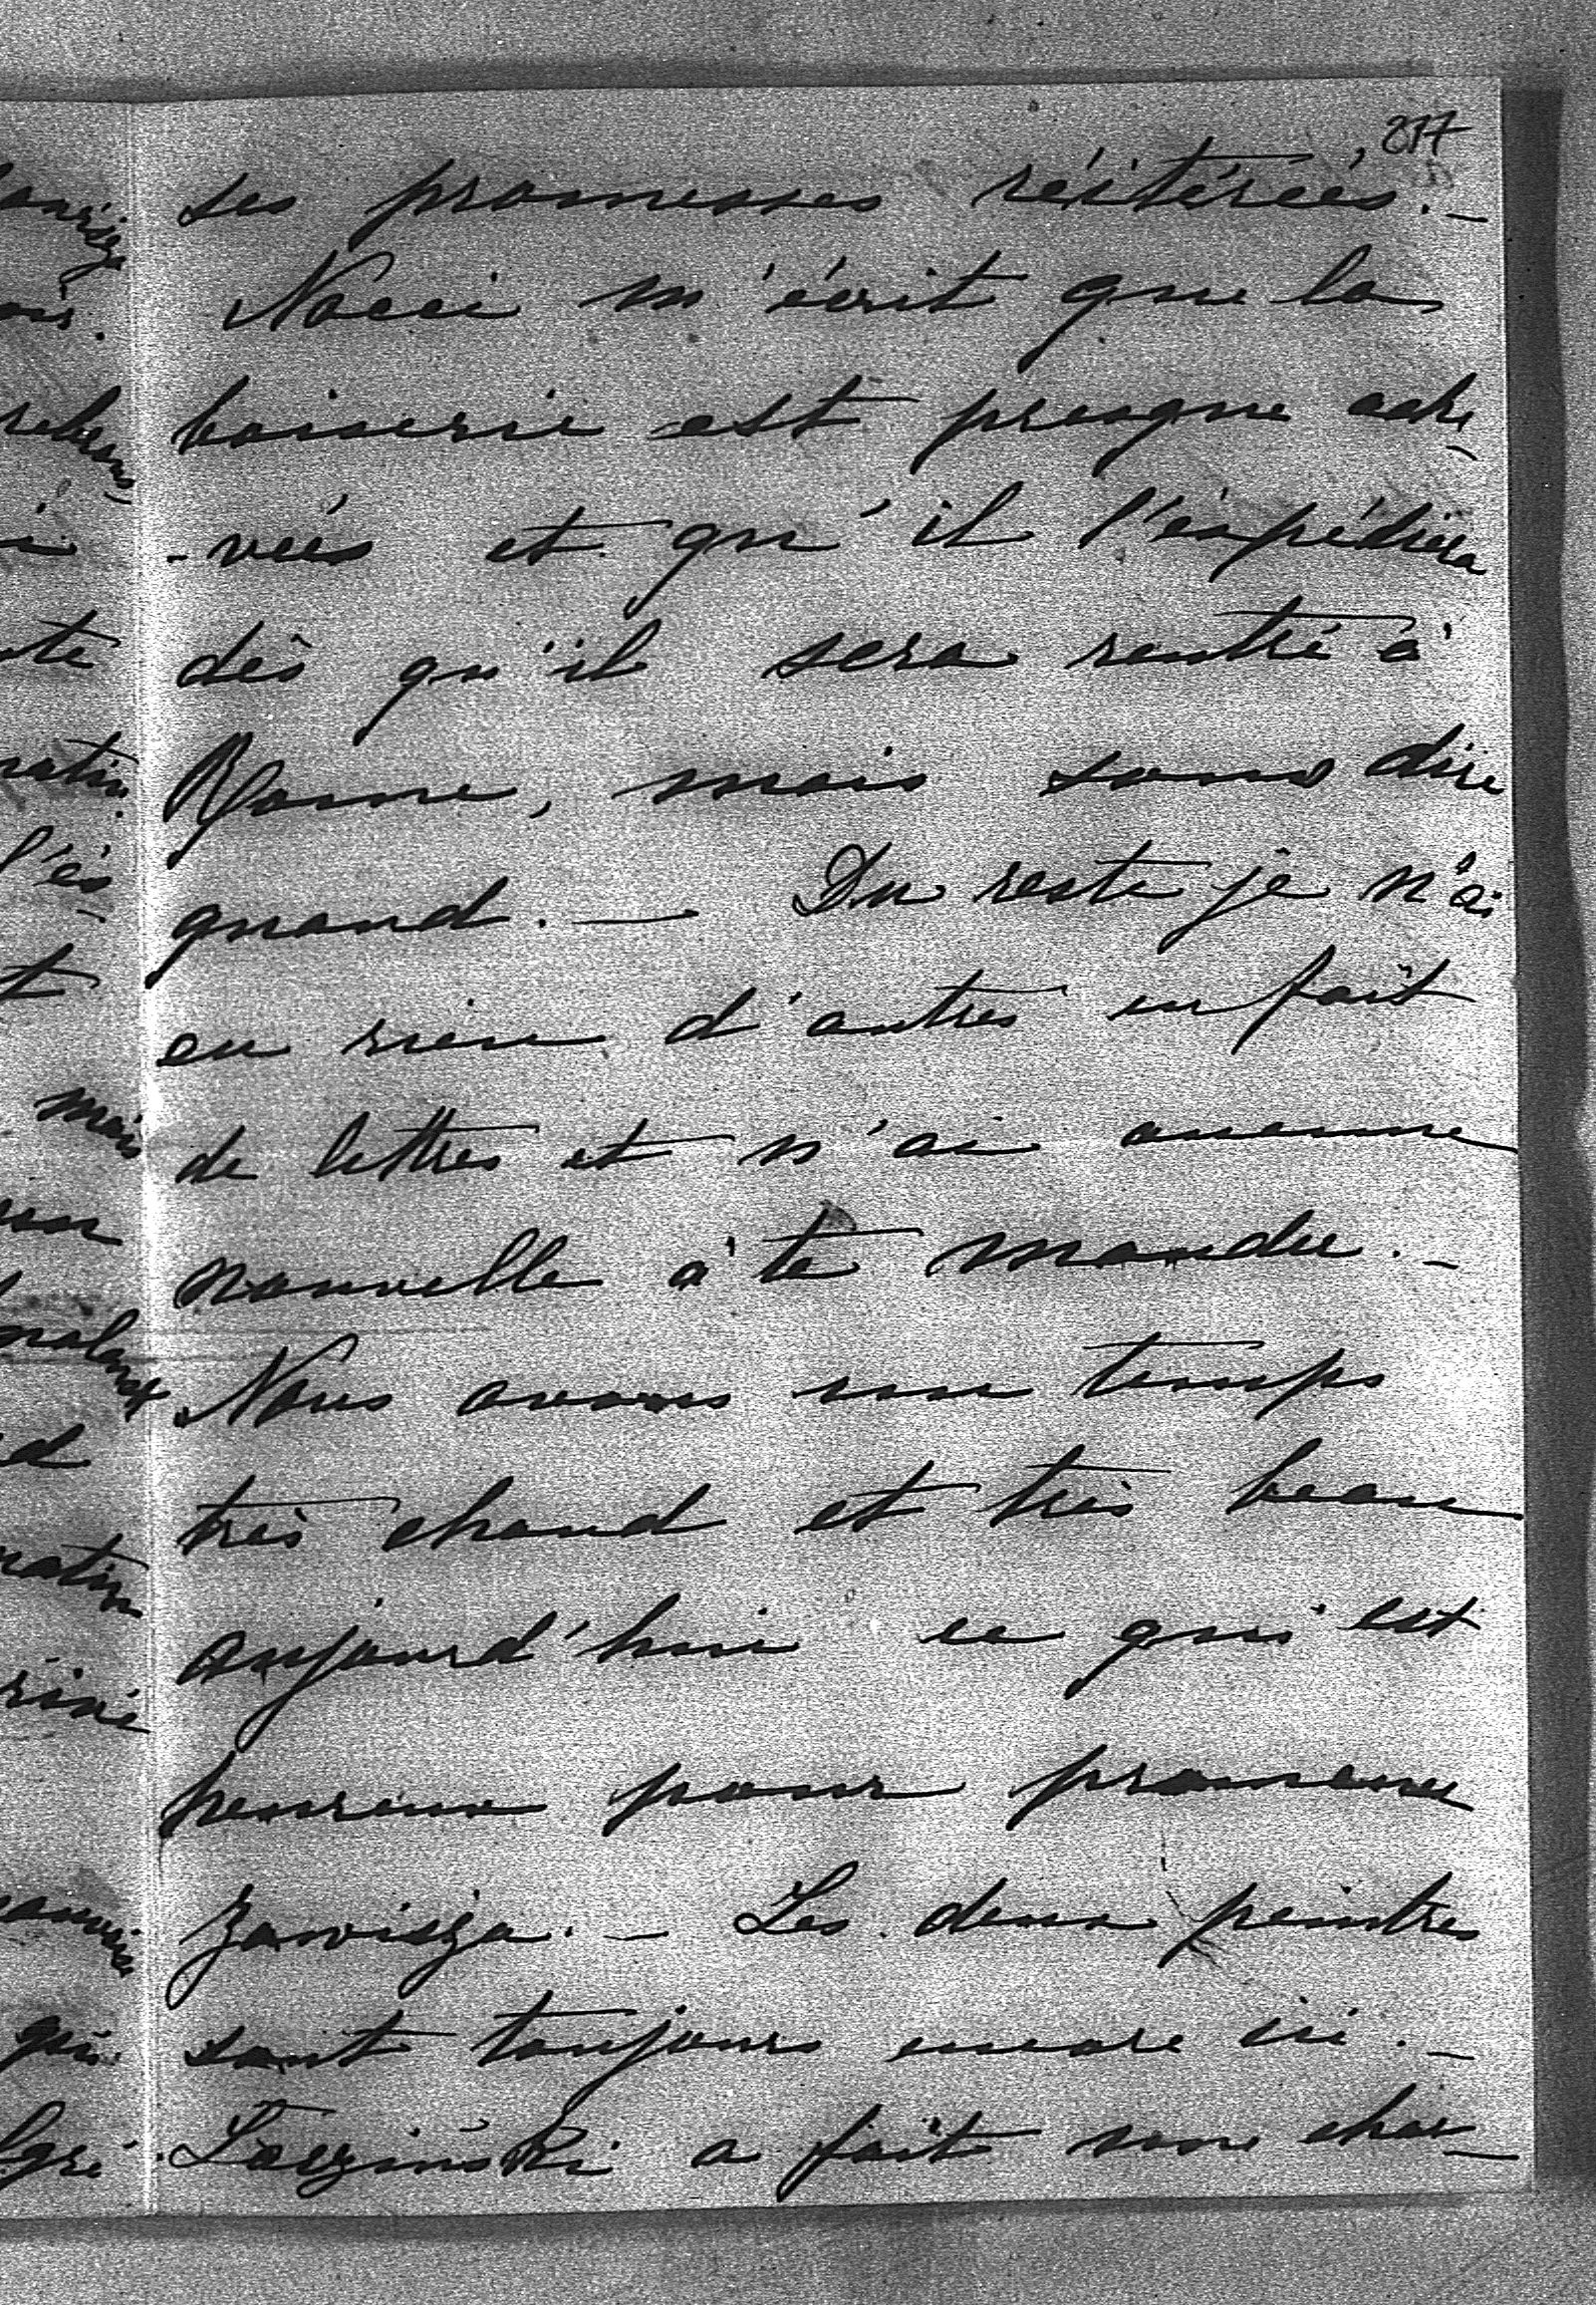 217
ses promesses réitérées. _
Nocci m'écrit que la
boiserie est presque ache
- vée et qu'il l'expédiera
dès qu'il sera rentré à
Rome, mais sans dire
quand. — Du reste je n'ai
eu rien d'autres en fait
de lettres et n'ai aucune
nouvelle à te mander. _
Nous avons un temps
très chaud et très beau
aujourd'hui ce qui est
heureux pour promener
Zawisza. — Les deux peintres
sont toujours encore ici. _
a fait une char_